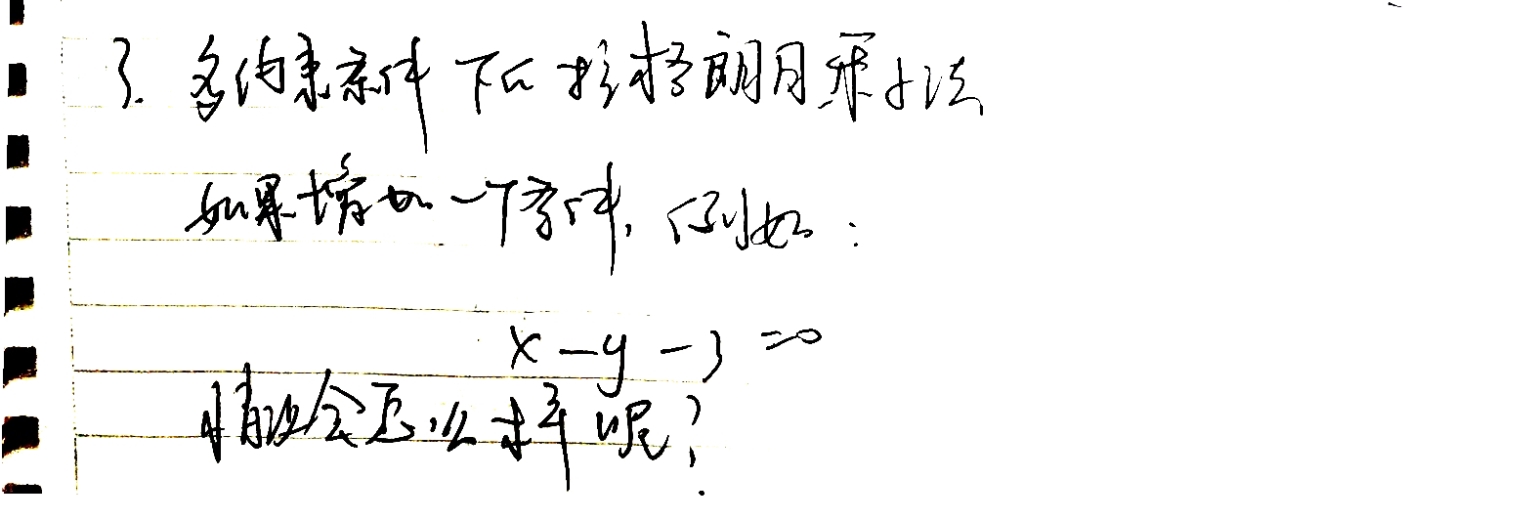 3. 多约束条件下的拉格朗日乘子法
如果增加一个条件,例如:
x-y-3=0
情况会怎么样呢?